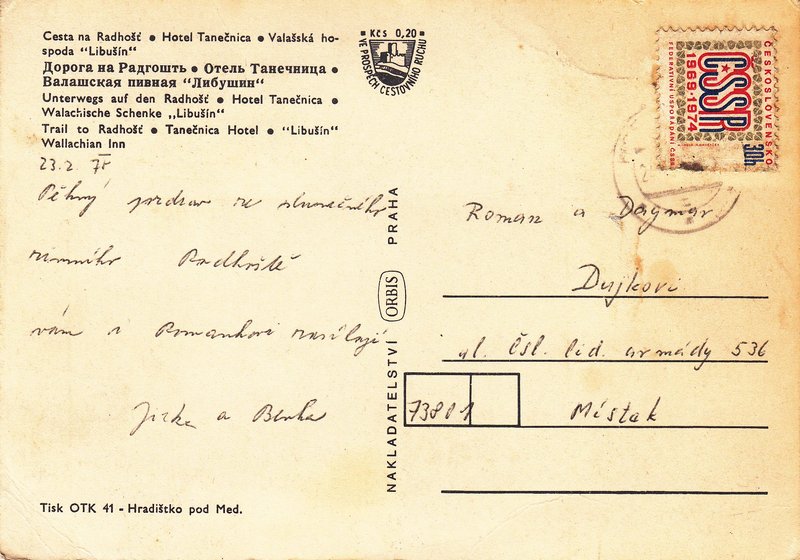 Cesta na Radhošť • Hotel Tanečnica • Valašská ho-
spoda "Libušín"
Дорога на Радгошть • Отель Танечница •
Валашская пивная "Либушин"
Unterwegs auf den Radhošť • Hotel Tanečnica •
Walachische Schenke „Libušín"
Trail to Radhošť • Tanečnica Hotel • "Libušín"
Wallachian Inn
Kčs 0,20
VE PROSPĚCH CESTOVNÍHO RUCHU
ČESKOSLOVENSKO
ČSSR
1969-1974
FEDERATIVNÍ USPOŘÁDÁNÍ ČSSR
30h
23.2.
Pěkný pozdrav ze slunečního
zimního Radhoště
vám i Romankovi zasílají
Jirka a
NAKLADATELSTVÍ ORBIS PRAHA
Roman a Dagmar
Dujkovi
ul. Čsl. lid. armády 536
73801 Místek
Tisk OTK 41 - Hradištko pod Med.